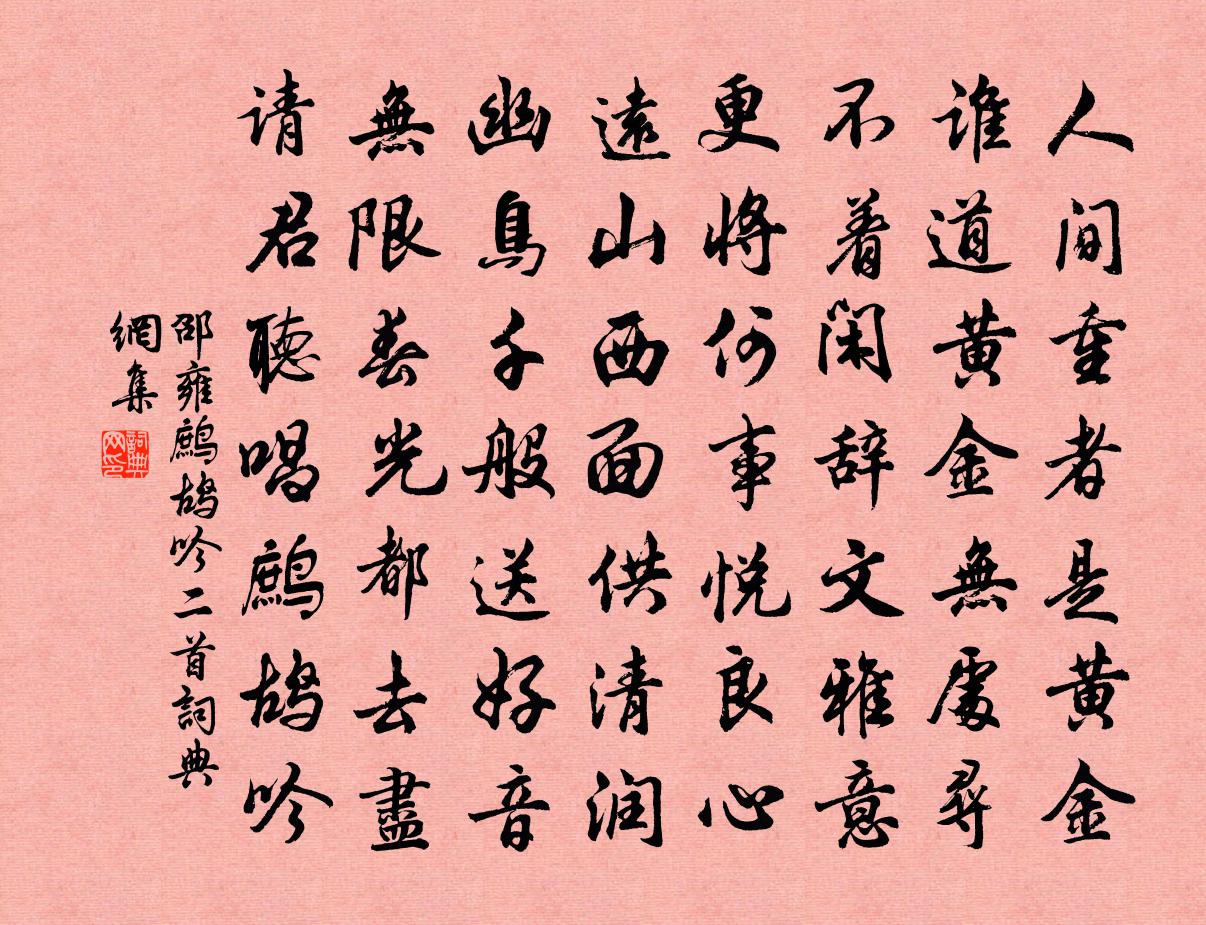 人间重者是黄金
谁道黄金無處尋
不着闲辞文雅意
更将何事悦良心
遠山西面供清润
幽鳥千般送好音
無限春光都去盡
请君聽唱鷓鸪吟
邵雍鷓鸪吟二首詞典
網集
詞典
网印